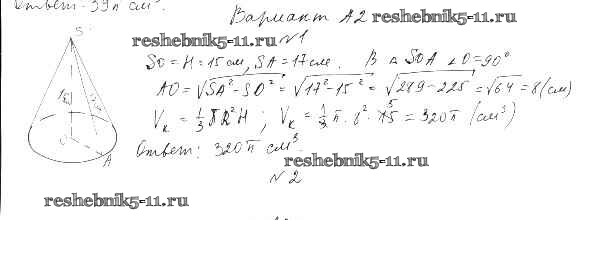 Ответ: 39π см³.
Вариант А2 reshebnik5-11.ru
reshebnik5-11.ru №1
S
SO = H = 15 см, SA = 17 см. В △ SOA ∠O = 90°
AO = √SA² - SO² = √17² - 15² = √289 - 225 = √64 = 8 (см)
15
17см
Vк = 1/3 πR²H ; Vк = 1/3 π · 8² · 15 5 = 320π (см³)
O
A
Ответ: 320π см³.
reshebnik5-11.ru
№2
reshebnik5-11.ru